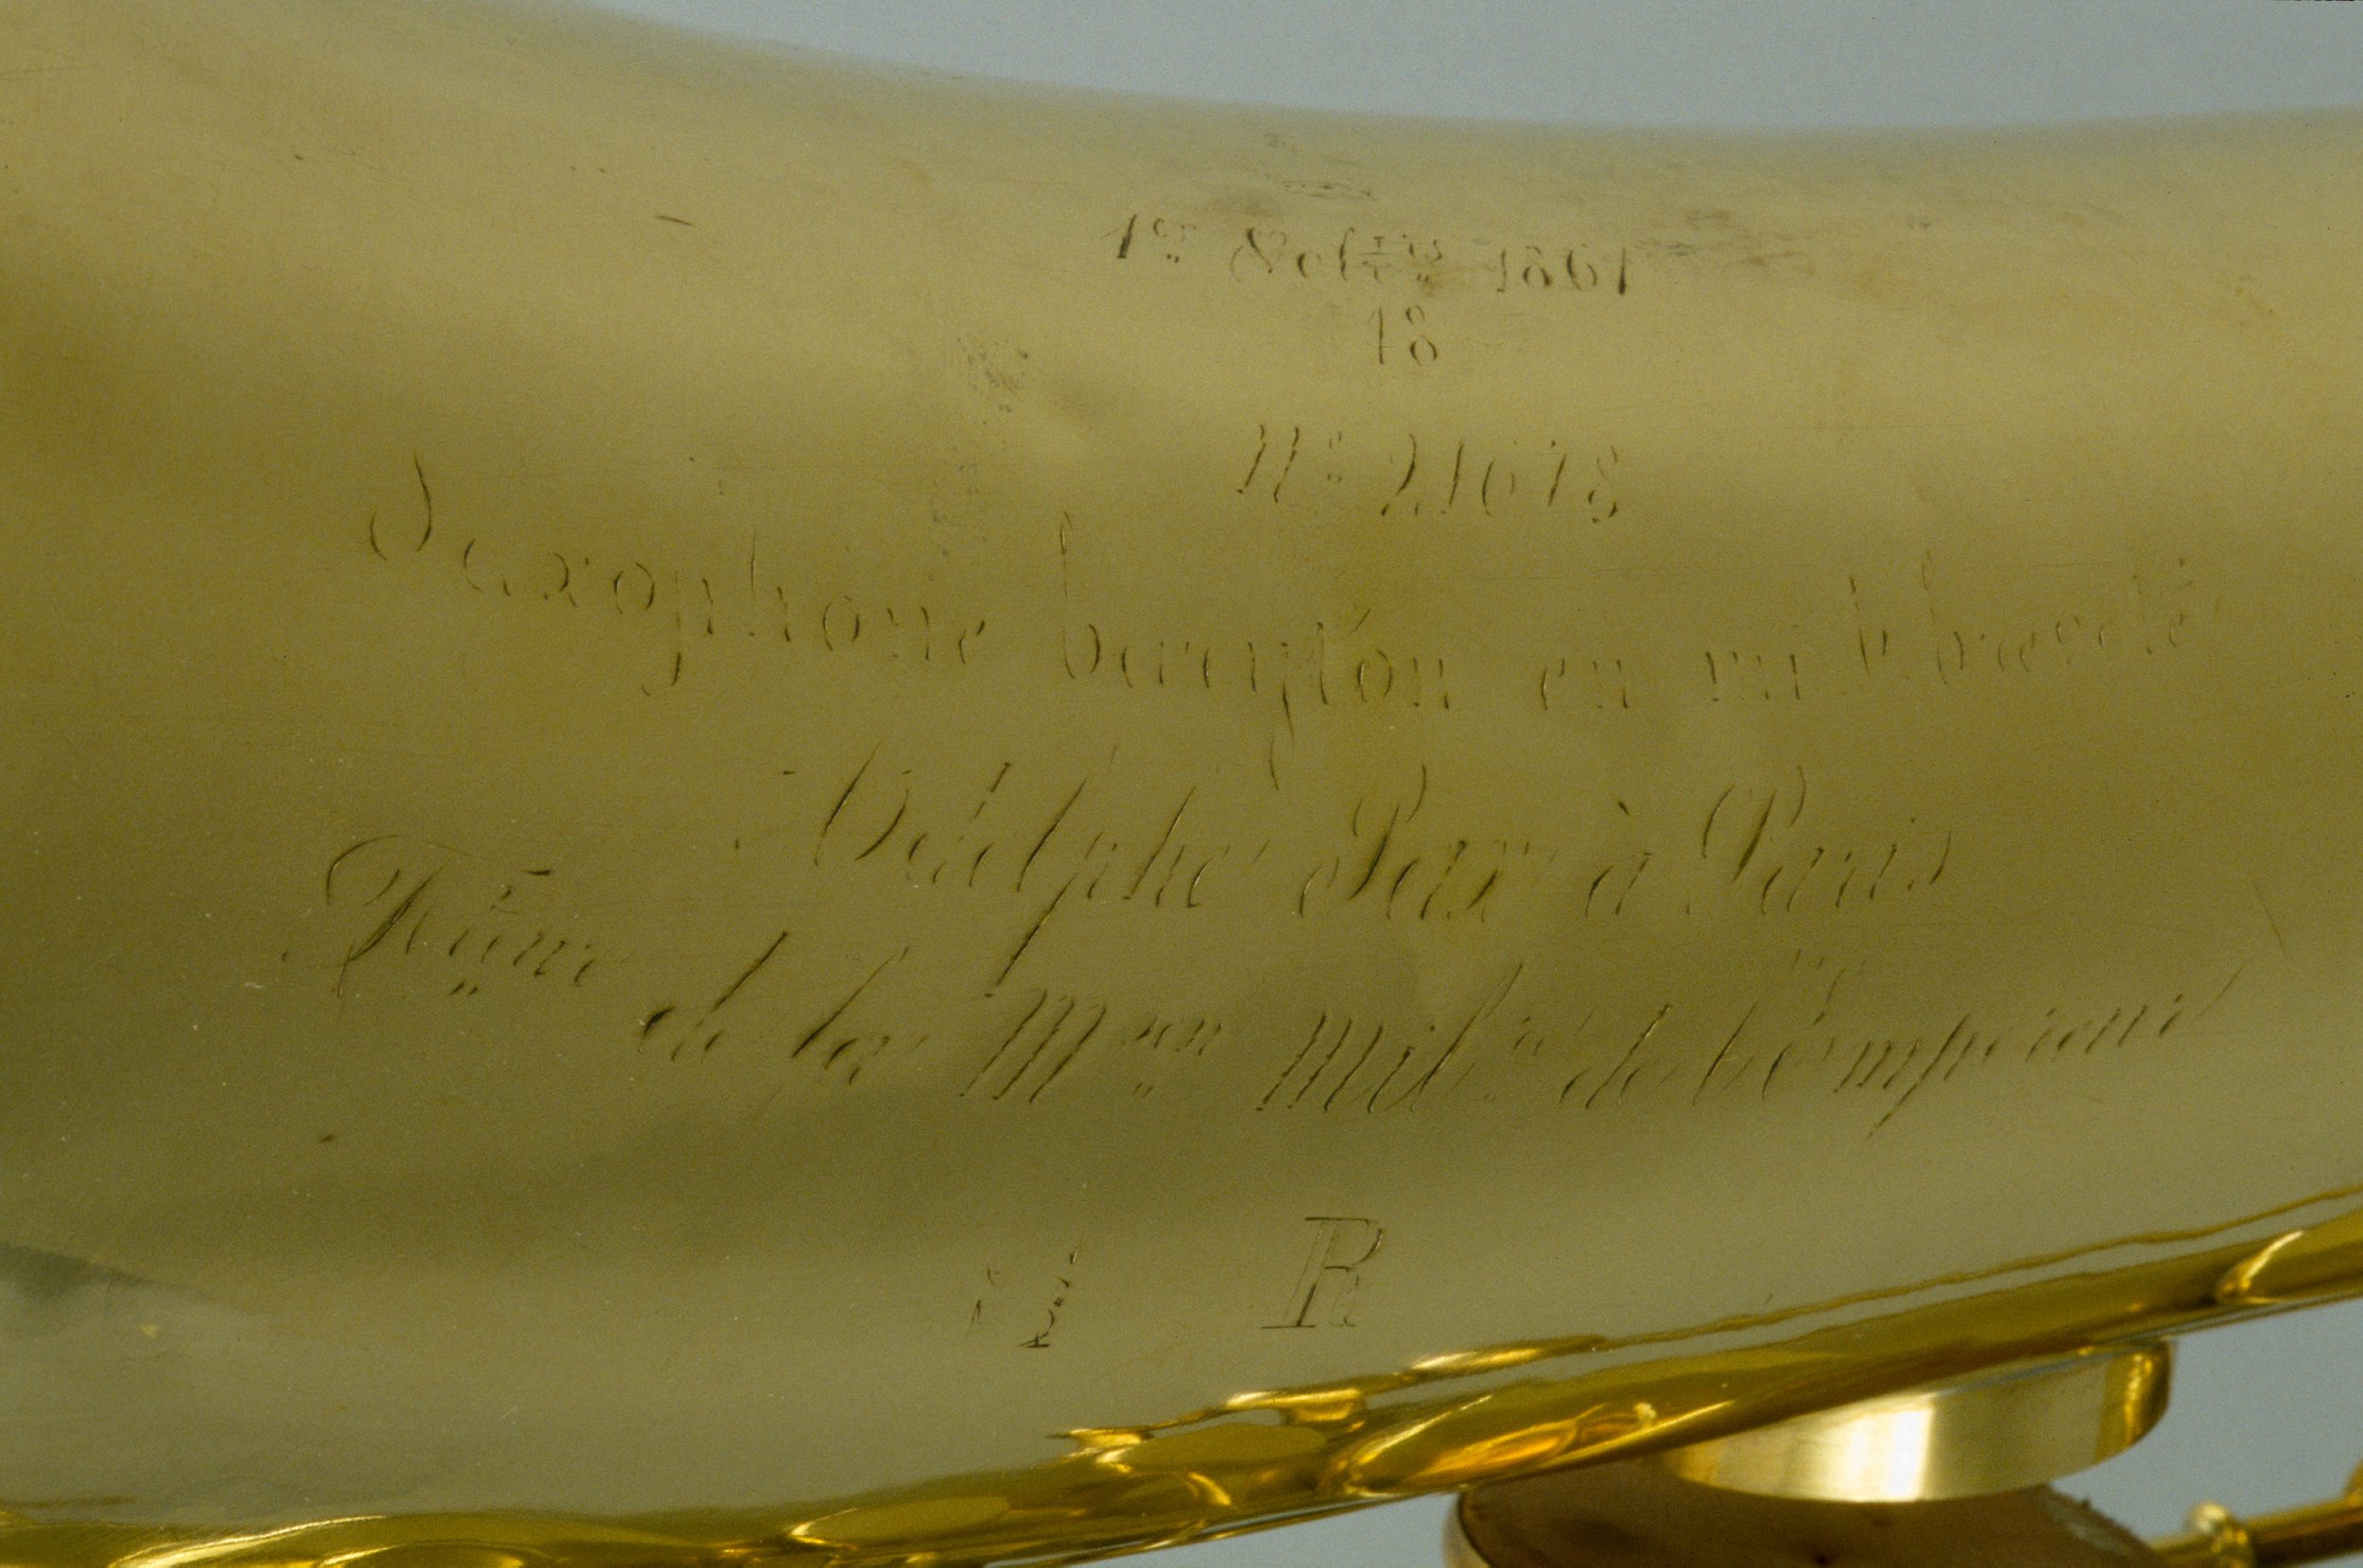 1er 7bre 1861
18
N° 21678
Saxophone baryton en mi b breveté
Adolphe Sax à Paris
Fteur
de la Mson Milre de l'Empereur
R